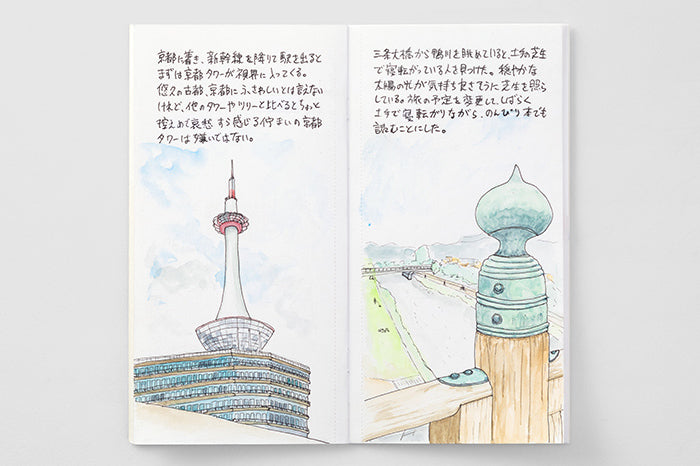 京都に着き、新幹線を降りて駅を出ると
まずは京都タワーが視界に入ってくる。
悠久の古都、京都にふさわしいとは言えない
けれど、他のタワーやツリーと比べるとちょっと
控えめで哀愁すら感じる佇まいの京都
タワーは嫌いではない。
三条大橋から鴨川を眺めていると、土手の芝生
で寝転がっている人を見つけた。穏やかな
太陽の光が気持ち良さそうに芝生を照ら
している。旅の予定を変更して、しばらく
土手で寝転がりながら、のんびり本でも
読むことにした。